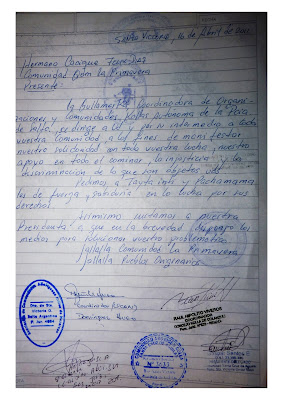 Santa Victoria, 16 de Abril de 2011
Hermano Cacique Felix Diaz
Comunidad Qom la Primavera
Presente
la Qullamarka Coordinadora de Organi-
zaciones y Comunidades Kollas Autónoma de la Pcia.
de Salta, se dirige a Ud. y por su intermedio a toda
vuestra Comunidad a los fines de manifestar
nuestra solidaridad con toda vuestra lucha, nuestro
apoyo en todo el caminar, la injusticia y la
discriminacion de la que son objetos.
Pedimos a Tayta inti y Pachamama
les de fuerza, sabiduria, en la lucha por sus
derechos.
Asimismo instamos a nuestra
Presidenta a que en la brevedad disponga los
medios para solucionar vuestra problematica.
Jallalla Comunidad La Primavera
Jallalla Pueblos Originarios
Dto. de Sta.
Victoria O.
Salta Argentina
RAUL HIPOLITO VIVEROS
COORDINADOR